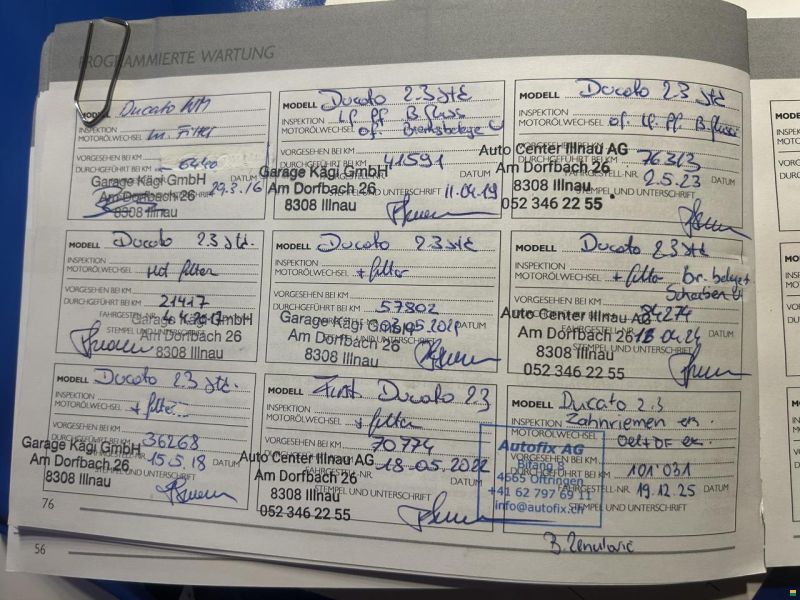 PROGRAMMIERTE WARTUNG
MODELL Ducato
INSPEKTION
MOTORÖLWECHSEL m. Filter
VORGESEHEN BEI KM
DURCHGEFÜHRT BEI KM 6440
Garage Kägi GmbH DATUM
Am Dorfbach 26 29.3.16
8308 Illnau
MODELL Ducato 2.3 Jtd.
INSPEKTION
MOTORÖLWECHSEL filter
VORGESEHEN BEI KM
DURCHGEFÜHRT BEI KM 21417
FAHRGESTELL-NR.
Garage Kägi GmbH
STEMPEL UND UNTERSCHRIFT
Am Dorfbach 26
8308 Illnau
MODELL Ducato 2.3 Jtd.
INSPEKTION
MOTORÖLWECHSEL + filter
VORGESEHEN BEI KM
DURCHGEFÜHRT BEI KM 36268
Garage Kägi GmbH
15.5.18 DATUM
Am Dorfbach 26
STEMPEL UND UNTERSCHRIFT
8308 Illnau
MODELL Ducato 2.3 Jtd
INSPEKTION Lf. Pf. B.fluss
MOTORÖLWECHSEL of. Bremsbelege
VORGESEHEN BEI KM
DURCHGEFÜHRT BEI KM 41591
Garage Kägi GmbH DATUM
Am Dorfbach 26 11.04.19
STEMPEL UND UNTERSCHRIFT
8308 Illnau
MODELL Ducato 2.3 Jtd
INSPEKTION
MOTORÖLWECHSEL + filter
VORGESEHEN BEI KM
DURCHGEFÜHRT BEI KM 57802
Garage Kägi GmbH DATUM
Am Dorfbach 26
STEMPEL UND UNTERSCHRIFT
8308 Illnau
MODELL Fiat Ducato 2.3
INSPEKTION
MOTORÖLWECHSEL + filter
VORGESEHEN BEI KM
DURCHGEFÜHRT BEI KM 70774
Auto Center Illnau AG
FAHRGESTELL-NR. 18.05.2022 DATUM
Am Dorfbach 26
STEMPEL UND UNTERSCHRIFT
8308 Illnau
052 346 22 55
MODELL Ducato 2.3 Jtd
INSPEKTION
MOTORÖLWECHSEL of. Lf. Pf. B.fluss
VORGESEHEN BEI KM
Auto Center Illnau AG
DURCHGEFÜHRT BEI KM 76313
Am Dorfbach 26
FAHRGESTELL-NR. 2.5.23 DATUM
8308 Illnau
STEMPEL UND UNTERSCHRIFT
052 346 22 55
MODELL Ducato 2.3 Jtd
INSPEKTION
MOTORÖLWECHSEL + filter Br. belege +
Scheiben
VORGESEHEN BEI KM
DURCHGEFÜHRT BEI KM 84274
Auto Center Illnau AG
FAHRGESTELL-NR. 04.24 DATUM
Am Dorfbach 26
STEMPEL UND UNTERSCHRIFT
8308 Illnau
052 346 22 55
MODELL Ducato 2.3
INSPEKTION Zahnriemen er.
MOTORÖLWECHSEL Oel + DF er.
VORGESEHEN BEI KM
DURCHGEFÜHRT BEI KM 101'031
FAHRGESTELL-NR. 19.12.25 DATUM
STEMPEL UND UNTERSCHRIFT
Autofix AG
Bifang 8
4665 Oftringen
+41 62 797 69 11
info@autofix.ch
76
56